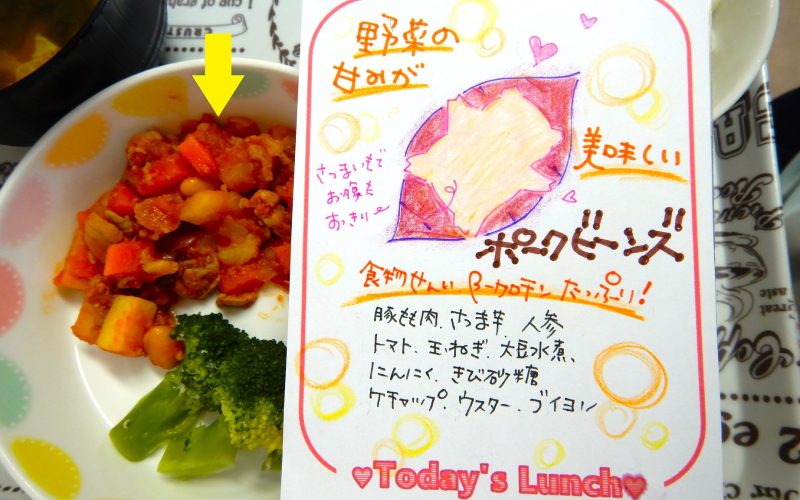 野菜の
甘みが
美味しい
さつまいもで
お腹も
すっきり
ポークビーンズ
食物せんい、β-カロテン たっぷり!
豚もも肉、さつま芋、人参
トマト、玉ねぎ、大豆水煮、
にんにく、きび砂糖
ケチャップ、ウスター、ブイヨン
Today's Lunch